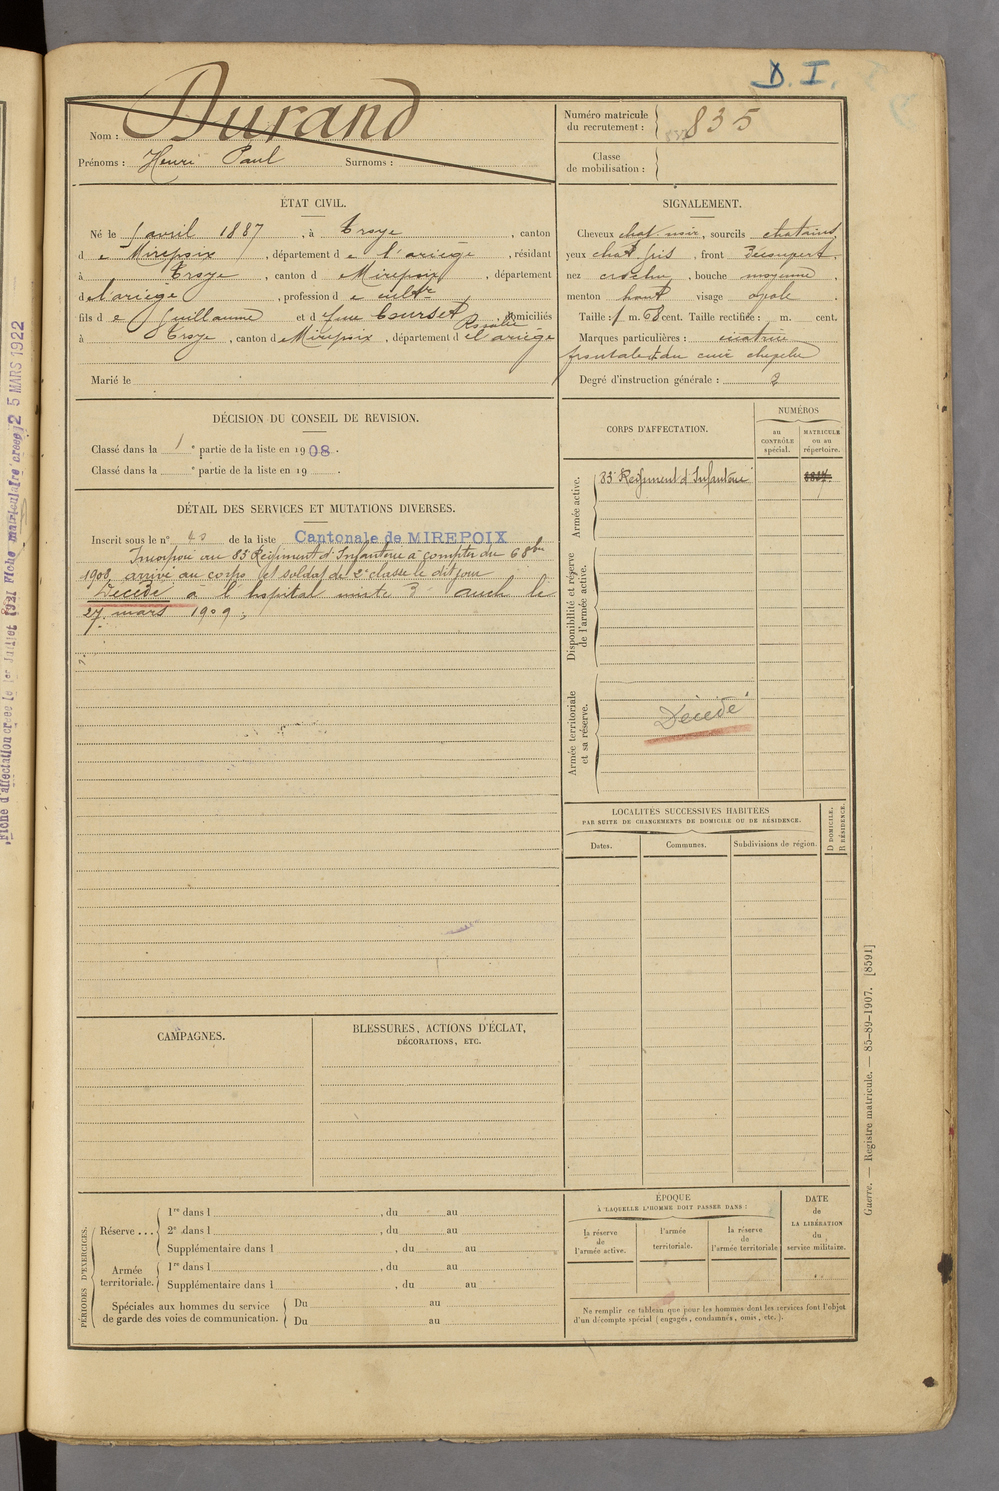 D. I.
Nom : Durand
Prénoms : Henri Paul Surnoms :
Numéro matricule du recrutement : 835
Classe de mobilisation :
ÉTAT CIVIL.
Né le avril 1887, à Troye, canton
de Mirepoix, département de l'ariège, résidant
à Troye, canton d Mirepoix, département
d l'ariège, profession de cultr
fils de Guillaume et d feue Courset Rosalie, domiciliés
à Troye, canton de Mirepoix, département d l'ariège
Marié le
SIGNALEMENT.
Cheveux chat. noir, sourcils chatains,
yeux chat. gris, front Découvert,
nez crochu, bouche moyenne,
menton haut visage ovale.
Taille : 1 m. 68 cent. Taille rectifiée : m. cent.
Marques particulières : cicatrice
frontale du cuir chevelu
Degré d'instruction générale : 2
DÉCISION DU CONSEIL DE REVISION.
Classé dans la 1e partie de la liste en 1908.
Classé dans la e partie de la liste en 19 .
DÉTAIL DES SERVICES ET MUTATIONS DIVERSES.
Inscrit sous le n° de la liste Cantonale de MIREPOIX
Incorporé au 83e Régiment d'Infanterie à compter du 6 8bre
1908, arrivé au corps et soldat de 2e classe le dit jour
Décédé a l'hopital mixte auch le
27 mars 1909,
CORPS D'AFFECTATION.
NUMÉROS
au CONTRÔLE spécial.
MATRICULE ou au répertoire.
Armée active.
83e Régiment d'Infanterie
Disponibilité et réserve de l'armée active.
Armée territoriale et sa réserve.
Décédé
LOCALITÉS SUCCESSIVES HABITÉES
PAR SUITE DE CHANGEMENTS DE DOMICILE OU DE RÉSIDENCE.
Dates. Communes. Subdivisions de région.
D DOMICILE.
R RÉSIDENCE.
CAMPAGNES.
BLESSURES, ACTIONS D'ÉCLAT,
DÉCORATIONS, ETC.
PÉRIODES D'EXERCICES.
Réserve ...
1re dans l , du au
2e dans l , du au
Supplémentaire dans l , du au
Armée territoriale.
1re dans l , du au
Supplémentaire dans l , du au
Spéciales aux hommes du service de garde des voies de communication.
Du au
Du au
ÉPOQUE
À LAQUELLE L'HOMME DOIT PASSER DANS :
la réserve de l'armée active.
l'armée territoriale.
la réserve de l'armée territoriale
DATE de LA LIBÉRATION du service militaire.
Ne remplir ce tableau que pour les hommes dont les services font l'objet
d'un décompte spécial (engagés, condamnés, omis, etc.).
Guerre. — Registre matricule. — 85-89-1907. [8591]
Fiche d'affectation créée le 1er Juillet 1921 Fiche matriculaire créée 25 MARS 1922